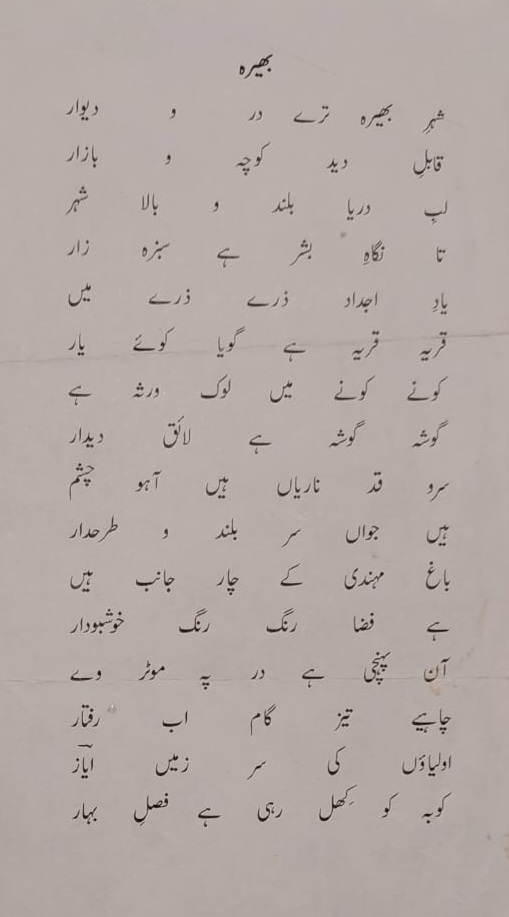 بھیرہ
شہرِ بھیرہ ترے در و دیوار
قابلِ دید کوچہ و بازار
لبِ دریا بلند و بالا شہر
تا نگاہِ بشر ہے سبزہ زار
یادِ اجداد ذرے ذرے میں
قریہ قریہ ہے گویا کوئے یار
کونے کونے میں لوک ورثہ ہے
گوشہ گوشہ ہے لائق دیدار
سرو قد ناریاں ہیں آہو چشم
ہیں جواں سر بلند و طرحدار
باغ مہندی کے چار جانب ہیں
ہے فضا رنگ رنگ خوشبودار
آن پہنچی ہے در پہ موٹر وے
چاہیے تیز گام اب رفتار
اولیاؤں کی سر زمیں ایاؔز
کوبہ کو کِھل رہی ہے فصلِ بہار